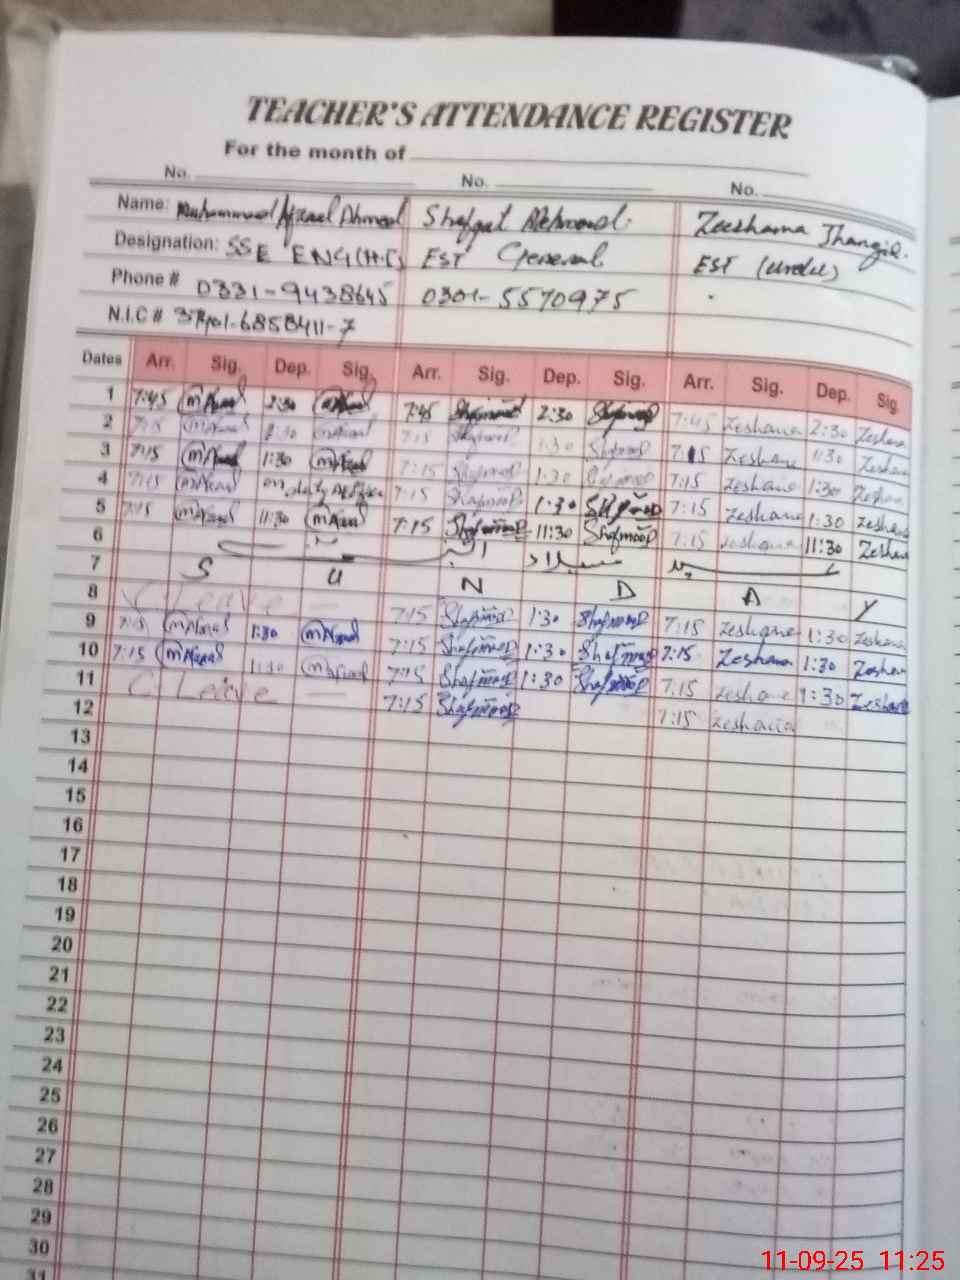 TEACHER'S ATTENDANCE REGISTER
For the month of
No. No. No.
Name: Muhammad Afzaal Ahmed Shafqat Mehmood. Zeeshana Jhangir.
Designation: SSE ENG(H.C) EST General EST (urdu)
Phone # 0331-9438645 0301-5570975
N.I.C #
Dates Arr. Sig. Dep. Sig. Arr. Sig. Dep. Sig. Arr. Sig. Dep. Sig.
1 7:45 mAfzaal 2:30 mAfzaal 7:45 Shafmood 2:30 Shafmood 7:45 Zeshana 2:30 Zeshana
2 7:15 mAfzaal 1:30 mAfzaal 7:15 Shafmood 1:30 Shafmood 7:15 Zeshana 1:30 Zeshana
3 7:15 mAfzaal 1:30 mAfzaal 7:15 Shafmood 1:30 Shafmood 7:15 Zeshana 1:30 Zeshana
4 7:15 mAfzaal on duty 7:15 Shafmood 1:30 Shafmood 7:15 Zeshana 1:30 Zeshana
5 7:15 mAfzaal 11:30 mAfzaal 7:15 Shafmood 11:30 Shafmood 7:15 Zeshana 11:30 Zeshana
6
7 S U N D A Y
8 C. Leave 7:15 Shafmood 1:30 Shafmood 7:15 Zeshana 1:30 Zeshana
9 7:15 mAfzaal 1:30 mAfzaal 7:15 Shafmood 1:30 Shafmood 7:15 Zeshana 1:30 Zeshana
10 7:15 mAfzaal 1:30 mAfzaal 7:15 Shafmood 1:30 Shafmood 7:15 Zeshana 1:30 Zeshana
11 C. Leave 7:15 Shafmood 7:15 Zeshana
12
13
14
15
16
17
18
19
20
21
22
23
24
25
26
27
28
29
30
31
11-09-25 11:25